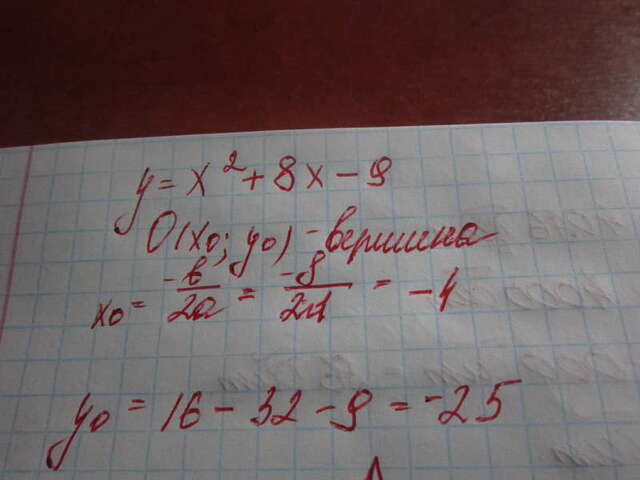 y = x² + 8x - 9
O(x₀; y₀) - вершина
x₀ = -b/2a = -8/2·1 = -4
y₀ = 16 - 32 - 9 = -25